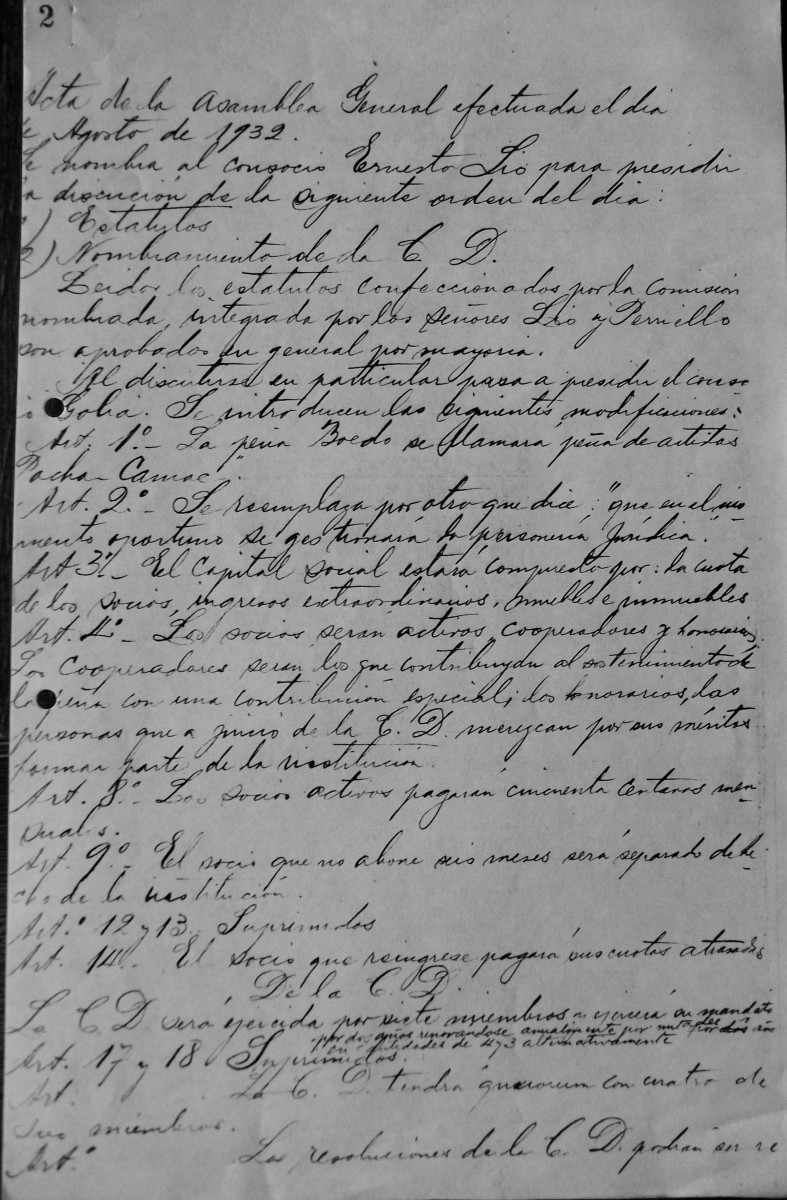 2
Acta de la Asamblea General efectuada el dia
Agosto de 1932.
nombra al consocio Ernesto Lió para presidir
discución de la siguiente orden del dia:
) Estatutos
2) Nombramiento de la C D.
Leidos los estatutos confeccionados por la Comisión
nombrada, integrada por los señores Lió y
son aprobados en general por mayoria.
Al discutirse en particular pasa a presidir el conso
Golia. Se introducen las siguientes modificaciones:
Art. 1º.- La peña Boedo se llamará "peña de artistas
Pacha-Camac".
Art. 2.º- Se reemplaza por otro que dice: "que en el mo
mento oportuno se gestionará la personería Jurídica".
Art 3º.- El Capital social estará compuesto por: la cuota
de los socios, ingresos extraordinarios, muebles e inmuebles
Art. 4º- Los socios serán activos, cooperadores y honorarios
Los cooperadores serán los que contribuyan al sostenimiento de
la peña con una contribución especial; los honorarios, las
personas que a juicio de la C. D. merezcan por sus méritos
formar parte de la institución.
Art. 8.º- Los socios activos pagarán cincuenta centavos men-
suales.
Art. 9º- El socio que no abone seis meses será separado de he-
cho de la institución.
Art.º 12 y 13. Suprimidos
Art. 14.- El socio que reingrese pagará sus cuotas atrasadas
De la C. D.
La C D será ejercida por siete miembros y ejercerá su mandato
por dos años renovándose anualmente por mitades
en cantidades de 4 y 3 alternativamente
Art. 17 y 18 Suprimidos.
Art. La C. D. tendrá quorum con cuatro de
sus miembros.
Art.º Las resoluciones de la C. D. podrán ser re